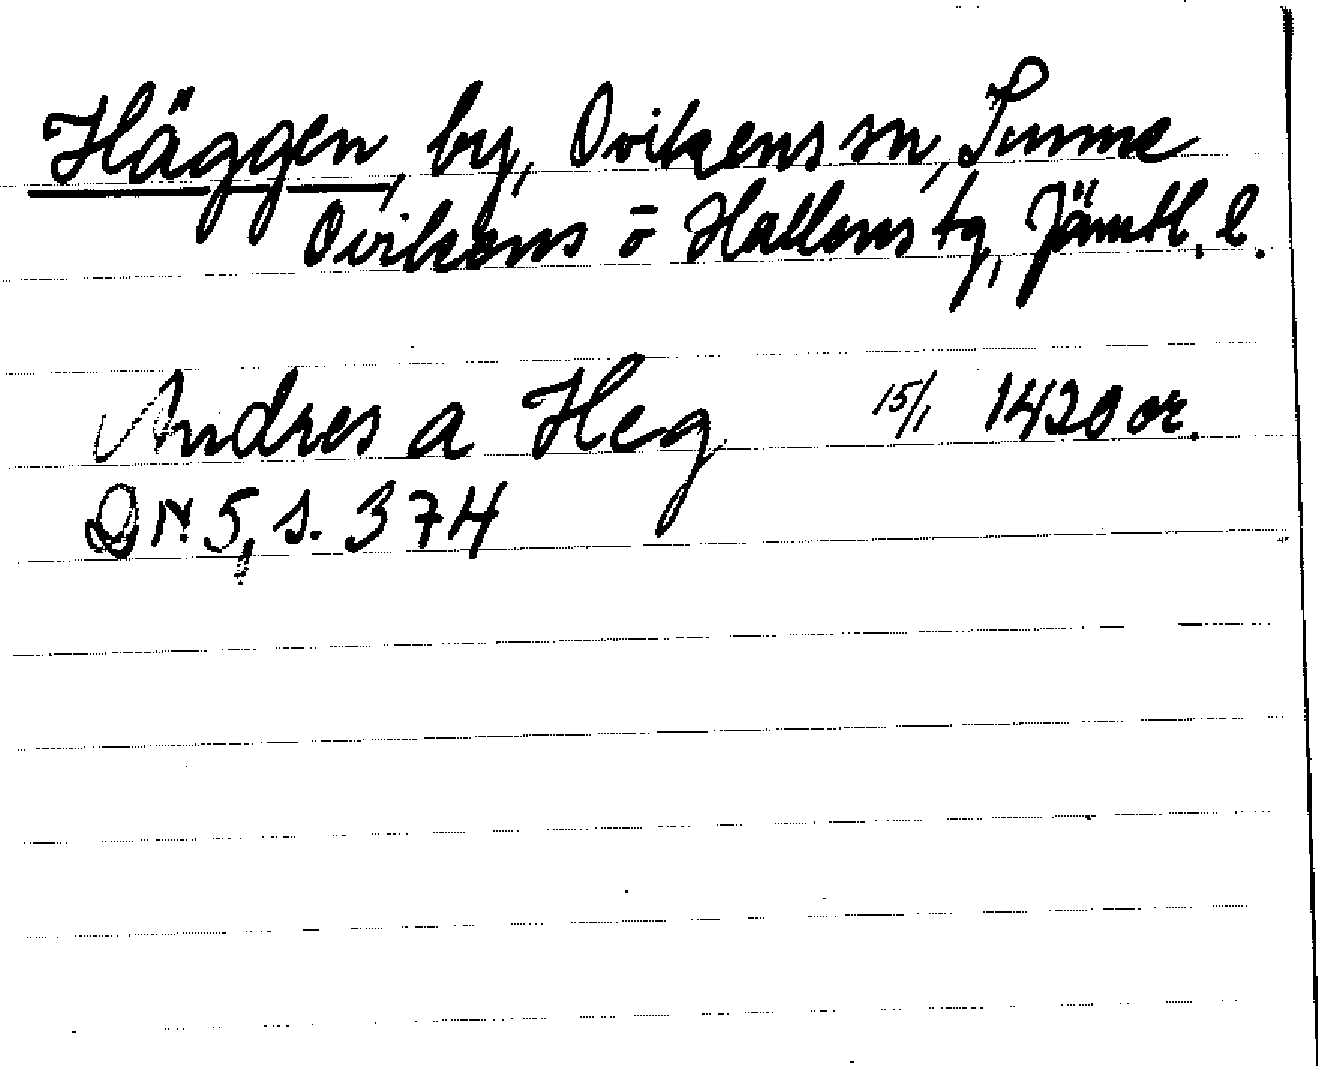 Häggen, by, Ovikens sn, Sunne
Ovikens o Hallens tg, Jämtl. l.
Andres a Heg 15/1 1420 or.
DN. 5, s. 374